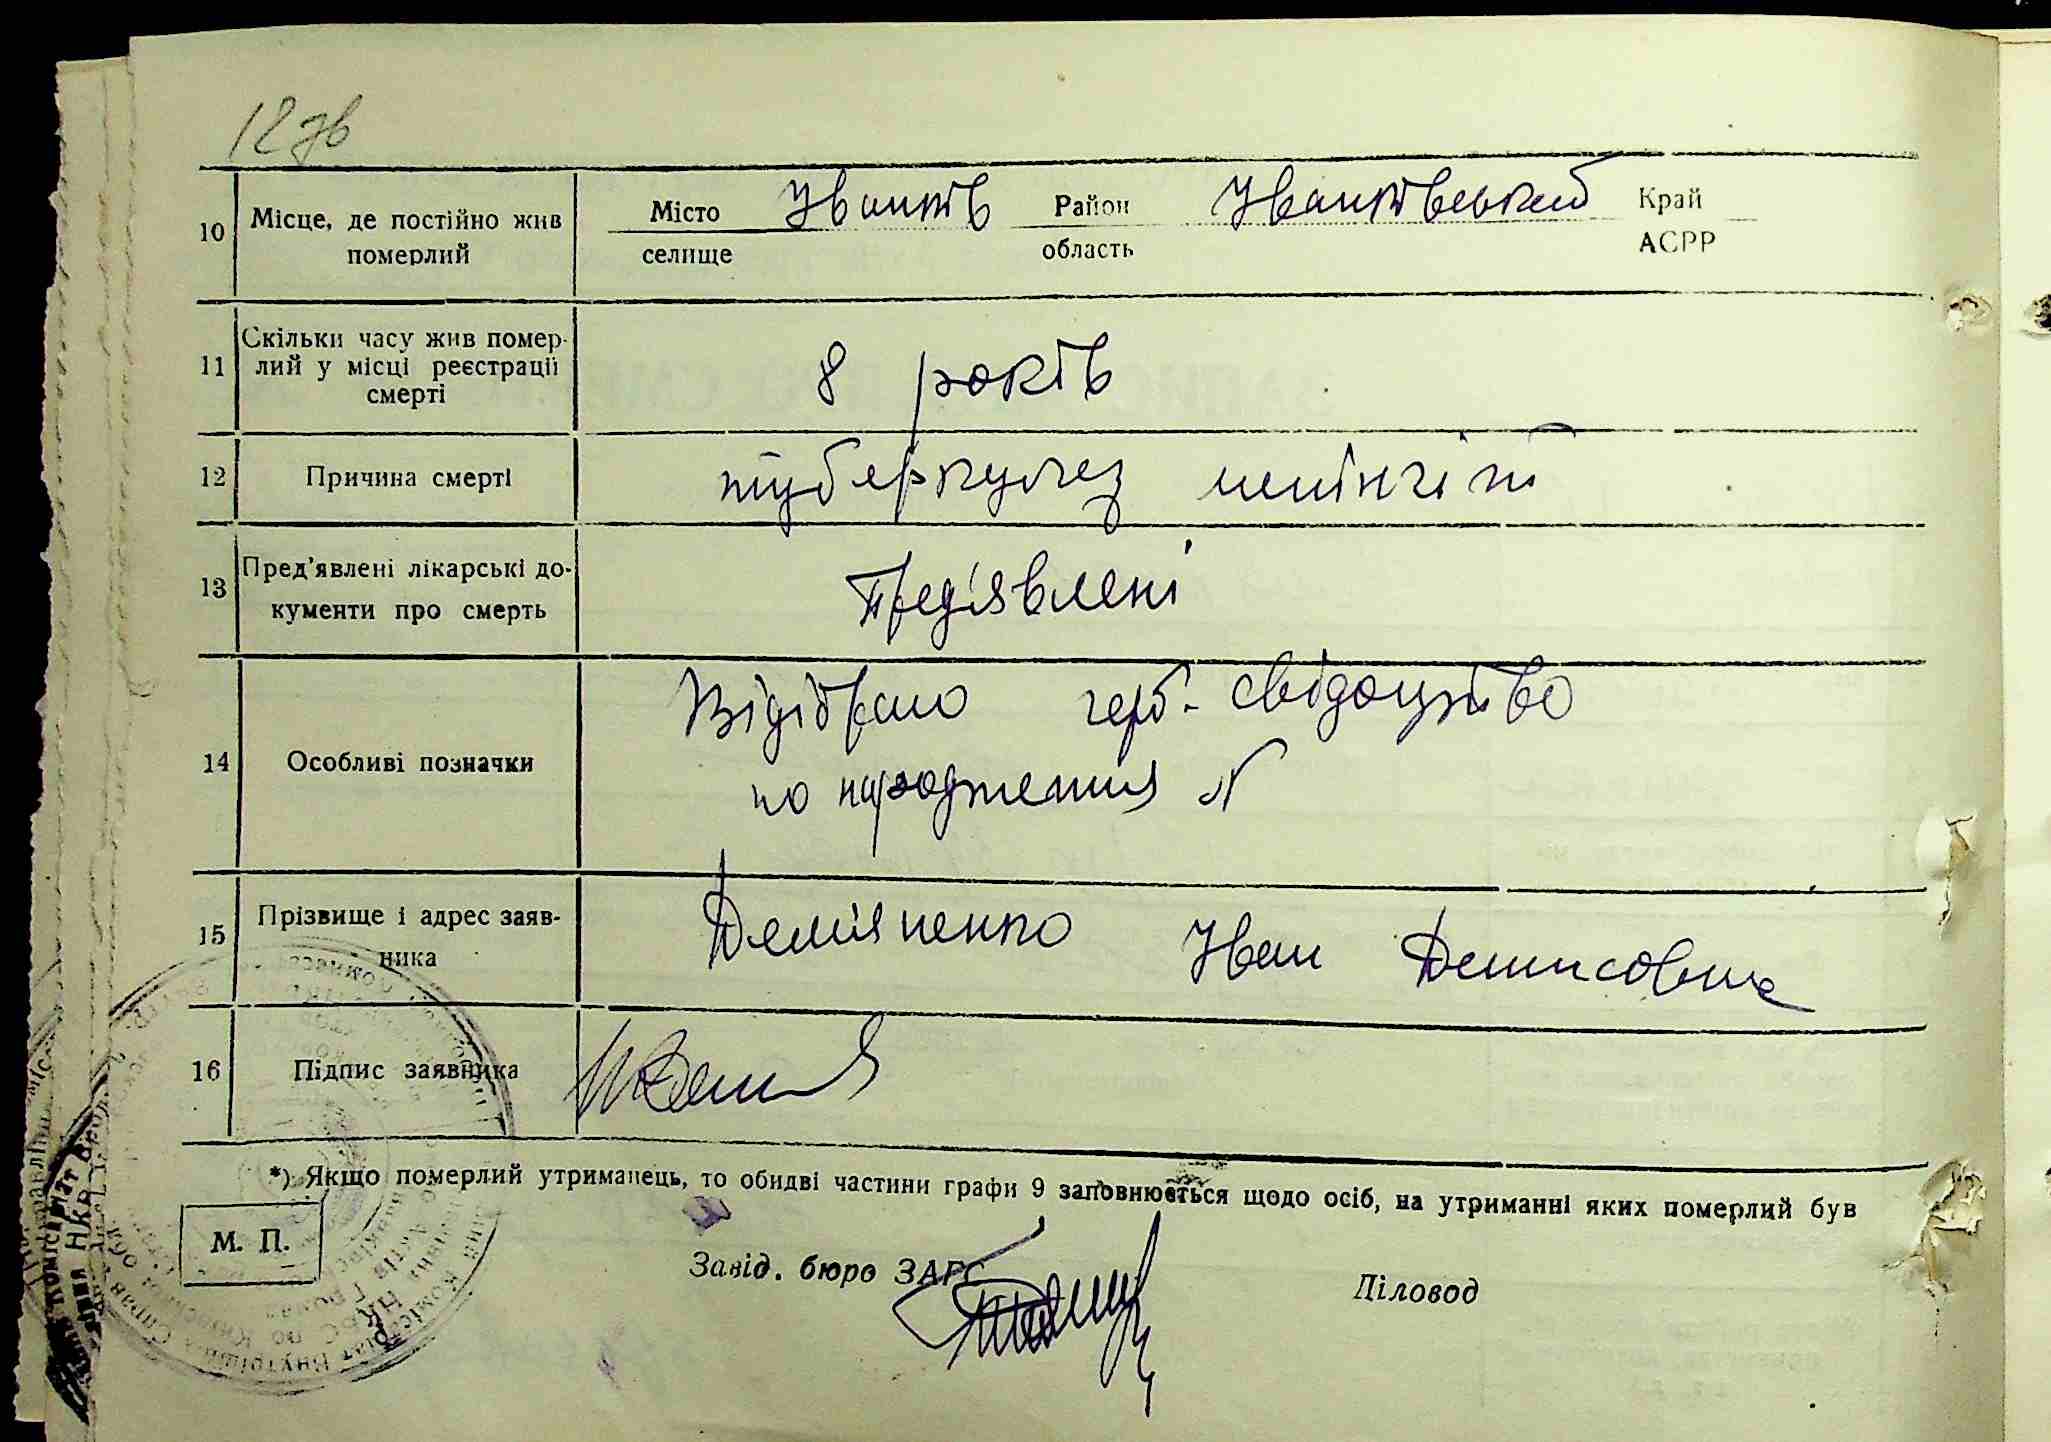 12зв
10 Місце, де постійно жив померлий Місто селище Іванків Район область Іванківський Край АСРР
11 Скільки часу жив помер-
лий у місці реєстрації
смерті
8 років
12 Причина смерті туберкулез менінгіт
13 Пред'явлені лікарські до-
кументи про смерть
Пред'явлені
14 Особливі позначки
Відібрано герб. свідоцтво
по народження №
15 Прізвище і адрес заяв-
ника
Дем'яненко Іван Денисович
16 Підпис заявника
*) Якщо померлий утриманець, то обидві частини графи 9 заповнюється щодо осіб, на утриманні яких померлий був
М. П.
Завід. бюро ЗАГС
Діловод